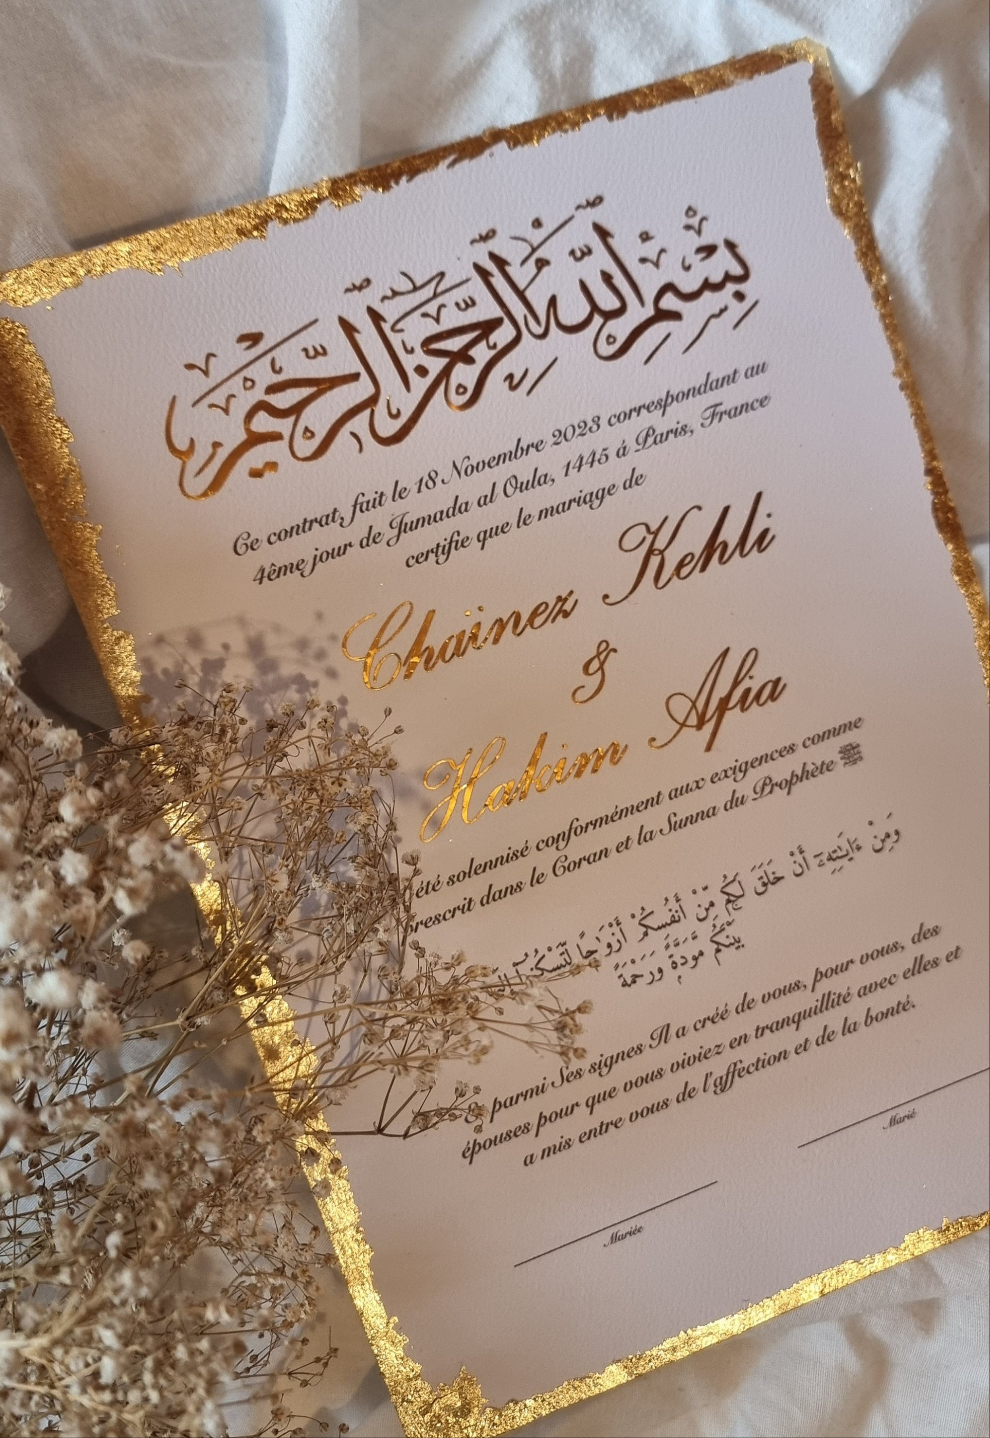 بِسْمِ اللهِ الرَّحْمٰنِ الرَّحِيْمِ
Ce contrat, fait le 18 Novembre 2023 correspondant au
4ême jour de Jumada al Oula, 1445 á Paris, France
certifie que le mariage de
Chaïnez Kehli
&
Hakim Afia
été solennisé conformément aux exigences comme
prescrit dans le Coran et la Sunna du Prophète ﷺ
وَمِنْ ءَايَـٰتِهِۦٓ أَنْ خَلَقَ لَكُم مِّنْ أَنفُسِكُمْ أَزْوَٰجًا لِّتَسْكُنُوٓا۟
بَيْنَكُم مَّوَدَّةً وَرَحْمَةً
& parmi Ses signes Il a créé de vous, pour vous, des
épouses pour que vous viviez en tranquillité avec elles et
a mis entre vous de l'affection et de la bonté.
Marié
Mariée